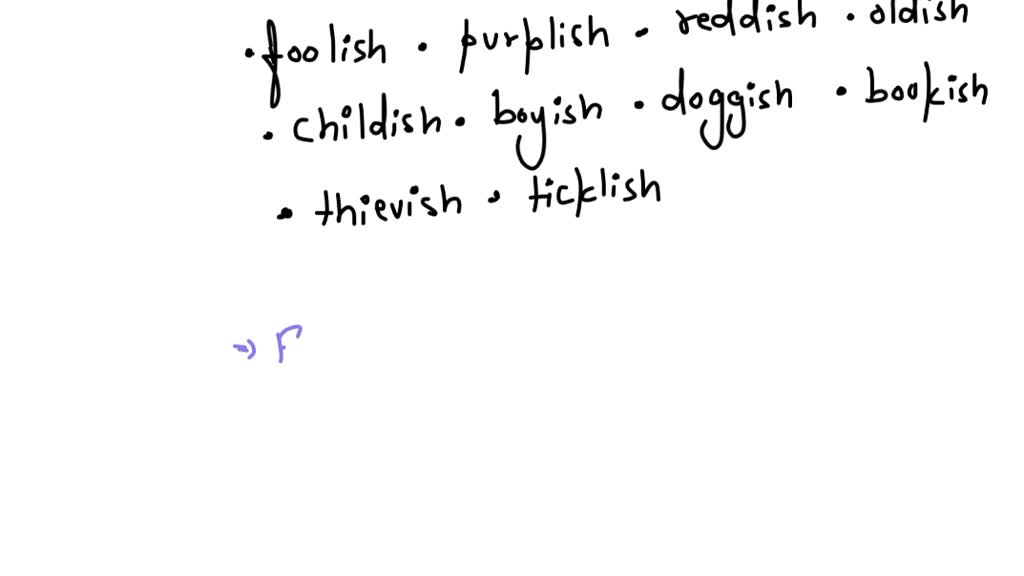 • foolish • purplish • reddish • oldish
• childish • boyish • doggish • bookish
• thievish • ticklish
⇒ F